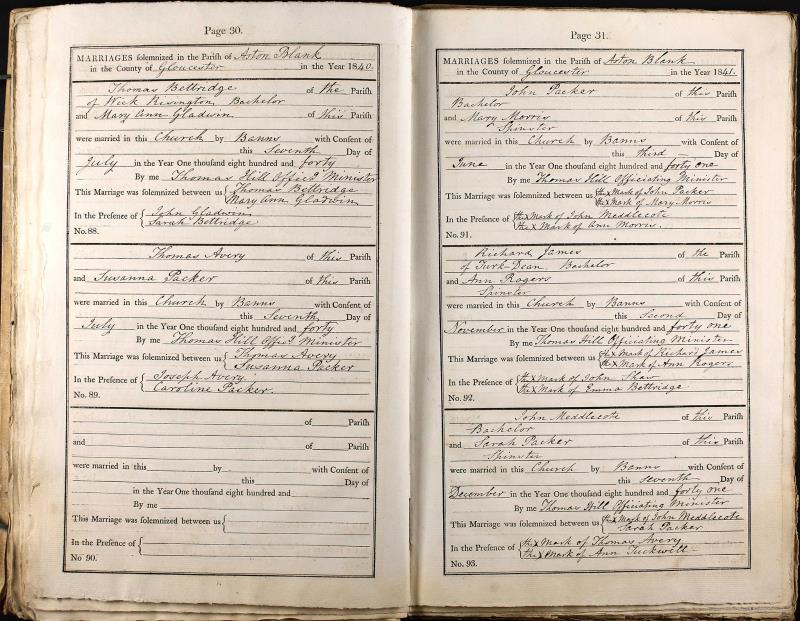 Page 30.
MARRIAGES solemnized in the Parish of Aston Blank
in the County of Gloucester in the Year 1840.
Thomas Bettridge of the Parish
of Wick Rissington Bachelor
and Mary Ann Gladwin of this Parish
were married in this Church by Banns with Consent of
this Seventh Day of
July in the Year One thousand eight hundred and forty
By me Thomas Hill Offic.g Minister
This Marriage was solemnized between us { Thomas Bettridge
Mary Ann Gladwin
In the Presence of { John Gladwin
Sarah Bettridge
No. 88.
Thomas Avery of this Parish
and Susanna Packer of this Parish
were married in this Church by Banns with Consent of
this Seventh Day of
July in the Year One thousand eight hundred and forty
By me Thomas Hill Offic.g Minister
This Marriage was solemnized between us { Thomas Avery
Susanna Packer
In the Presence of { Joseph Avery
Caroline Packer.
No. 89.
of Parish
and of Parish
were married in this by with Consent of
this Day of
in the Year One thousand eight hundred and
By me
This Marriage was solemnized between us {
In the Presence of {
No 90.
Page 31.
MARRIAGES solemnized in the Parish of Aston Blank
in the County of Gloucester in the Year 1841.
John Packer of this Parish
Bachelor
and Mary Morris of this Parish
Spinster
were married in this Church by Banns with Consent of
this third Day of
June in the Year One thousand eight hundred and forty one
By me Thomas Hill Officiating Minister
This Marriage was solemnized between us { the X Mark of John Packer
the X Mark of Mary Morris
In the Presence of { the X Mark of John Meddlecote
the X Mark of Ann Morris.
No. 91.
Richard James of the Parish
of Turk-Dean Bachelor
and Ann Rogers of this Parish
Spinster
were married in this Church by Banns with Consent of
this Second Day of
November in the Year One thousand eight hundred and forty one
By me Thomas Hill Officiating Minister
This Marriage was solemnized between us { the X Mark of Richard James
the X Mark of Ann Rogers
In the Presence of { the X Mark of John Shaw
the X Mark of Emma Bettridge
No. 92.
John Meddlecote of this Parish
Bachelor
and Sarah Packer of this Parish
Spinster
were married in this Church by Banns with Consent of
this seventh Day of
December in the Year One thousand eight hundred and forty one
By me Thomas Hill Officiating Minister
This Marriage was solemnized between us { the X Mark of John Meddlecote
Sarah Packer
In the Presence of { the X Mark of Thomas Avery
the X Mark of Ann Tuckwell
No. 93.